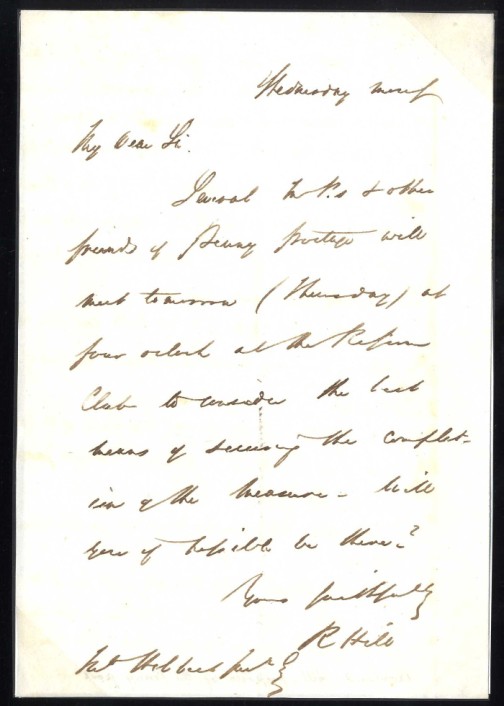 Wednesday morng
My Dear Sir.
Several M.P.s & other
friends of Penny Postage will
meet tomorrow (Thursday) at
four oclock at the Reform
Club to consider the best
means of securing the complet-
ion of the measure - Will
you if possible be there?
Yours faithfully
R Hill